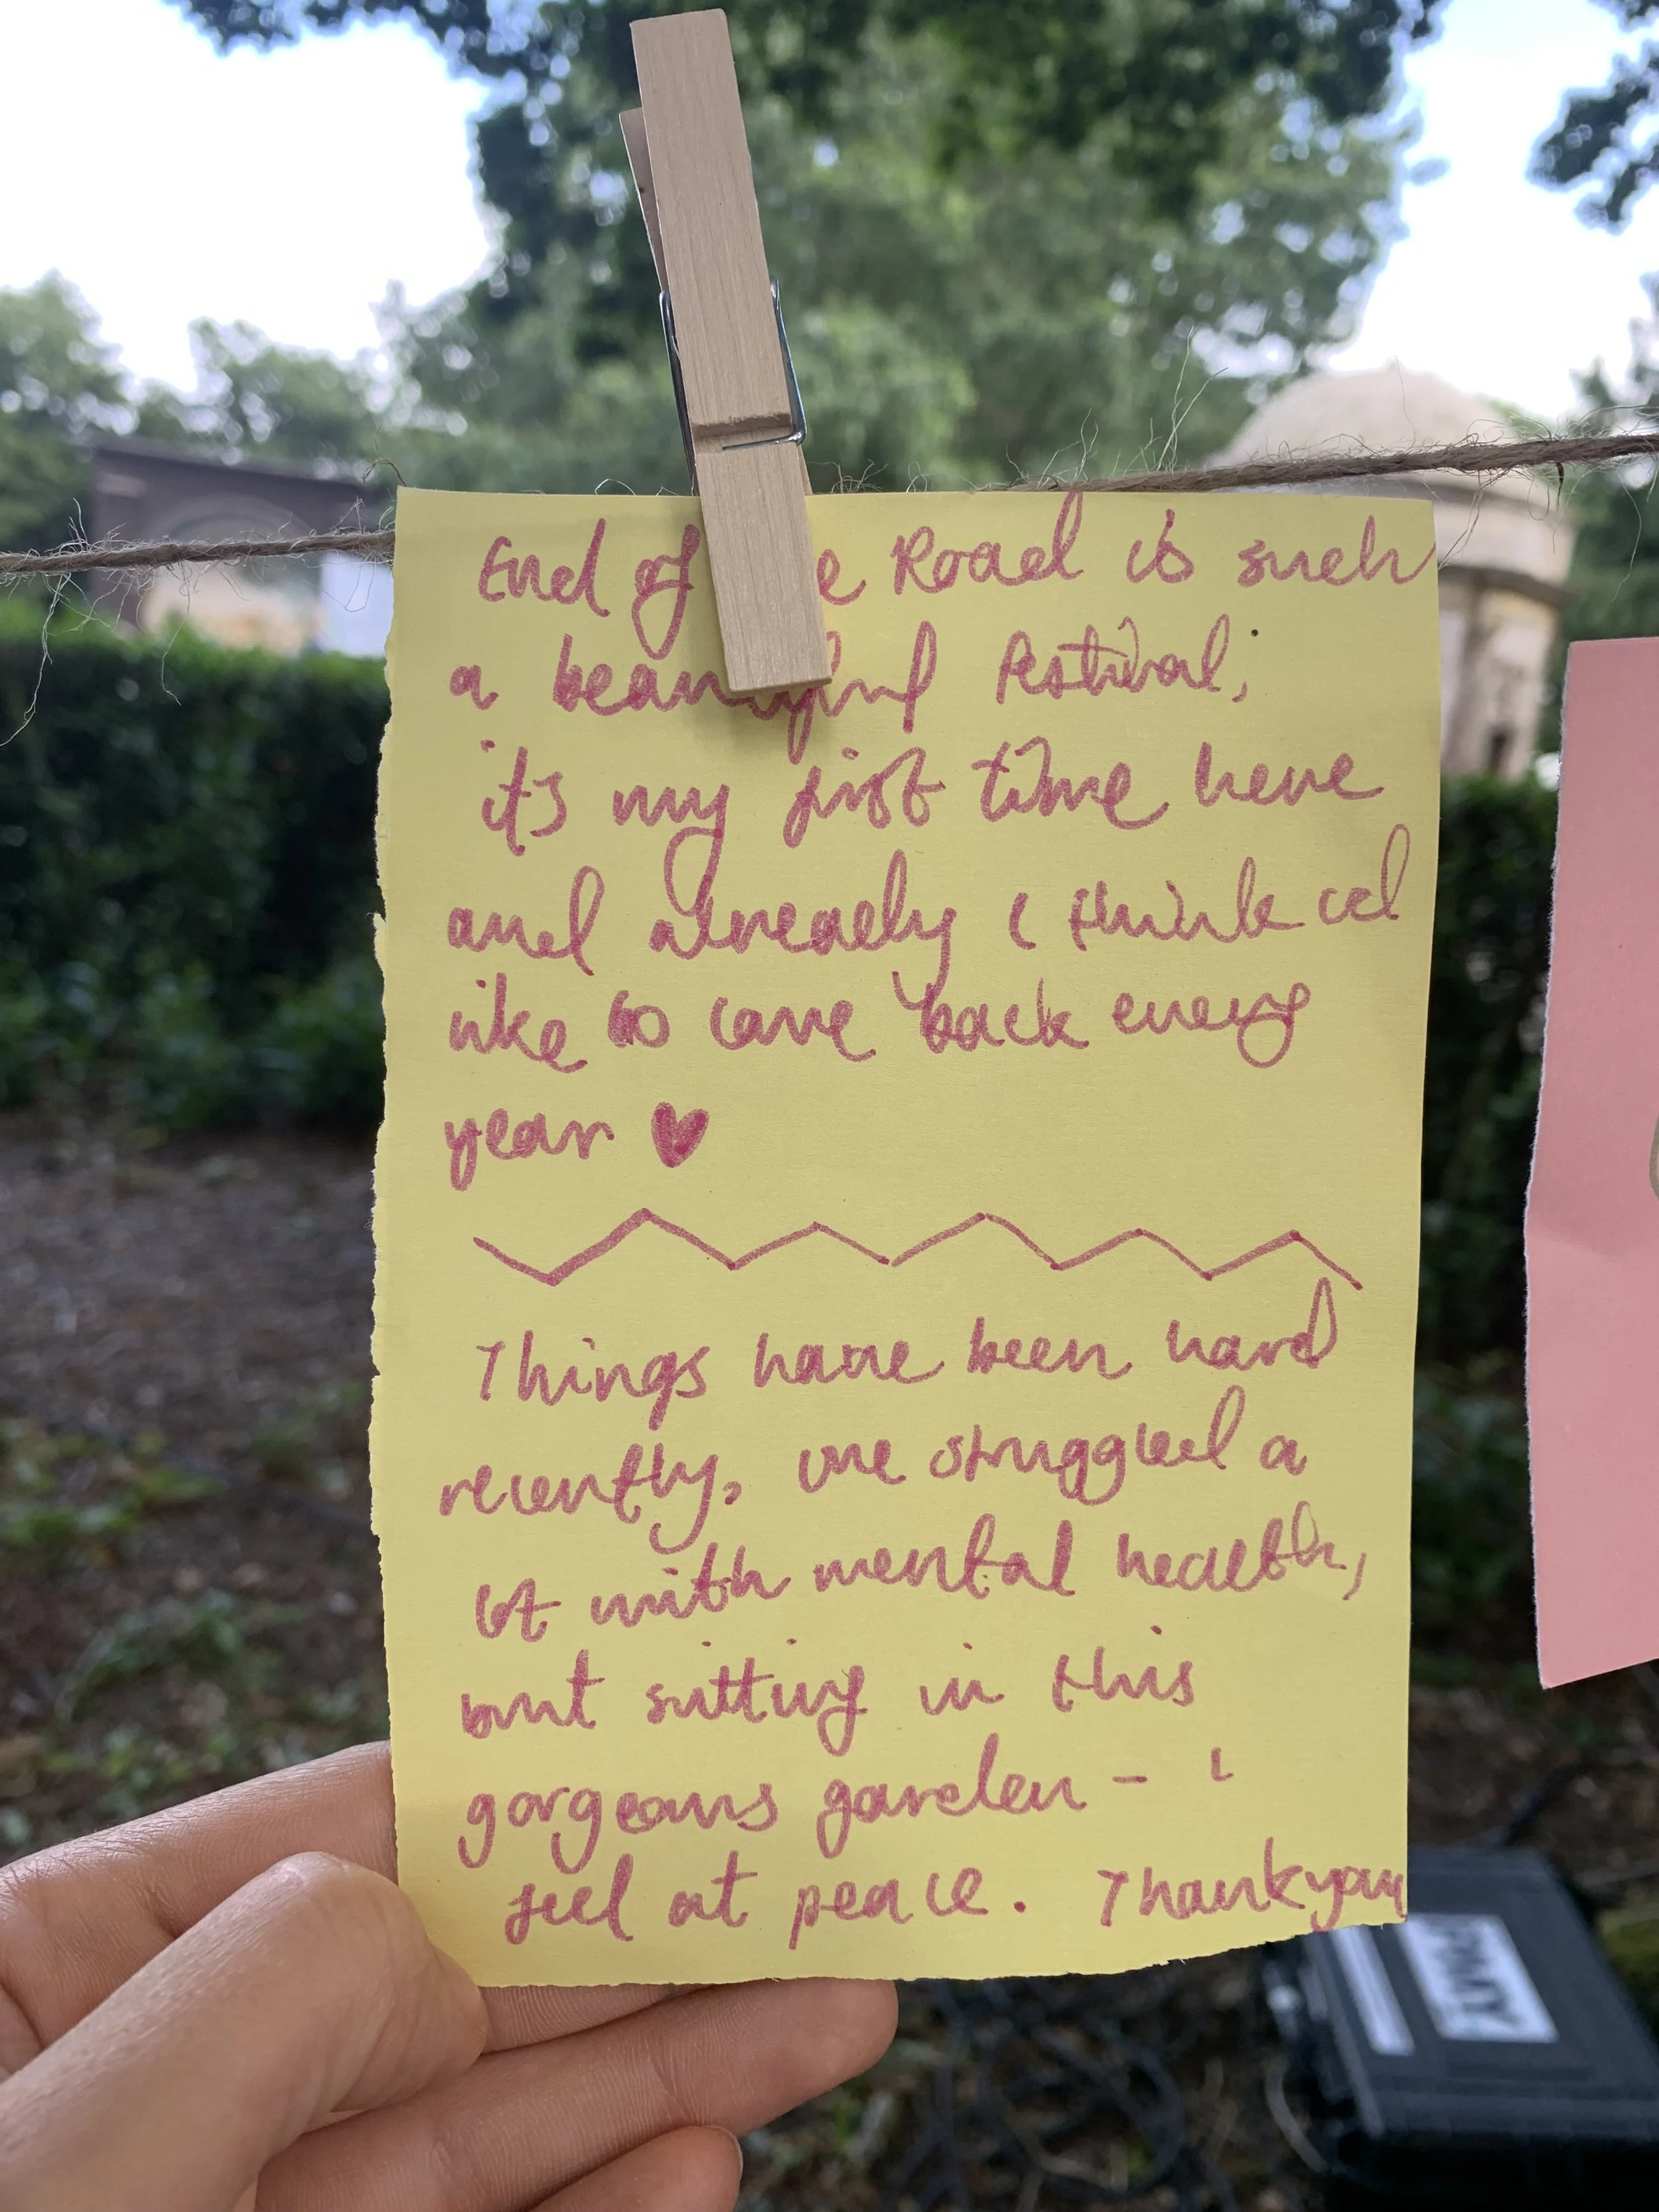 End of the Road is such
a beautiful festival,
it's my first time here
and already i think id
like to come back every
year ♥
Things have been hard
recently, ive struggled a
lot with mental health,
but sitting in this
gorgeous garden – i
feel at peace. Thankyou